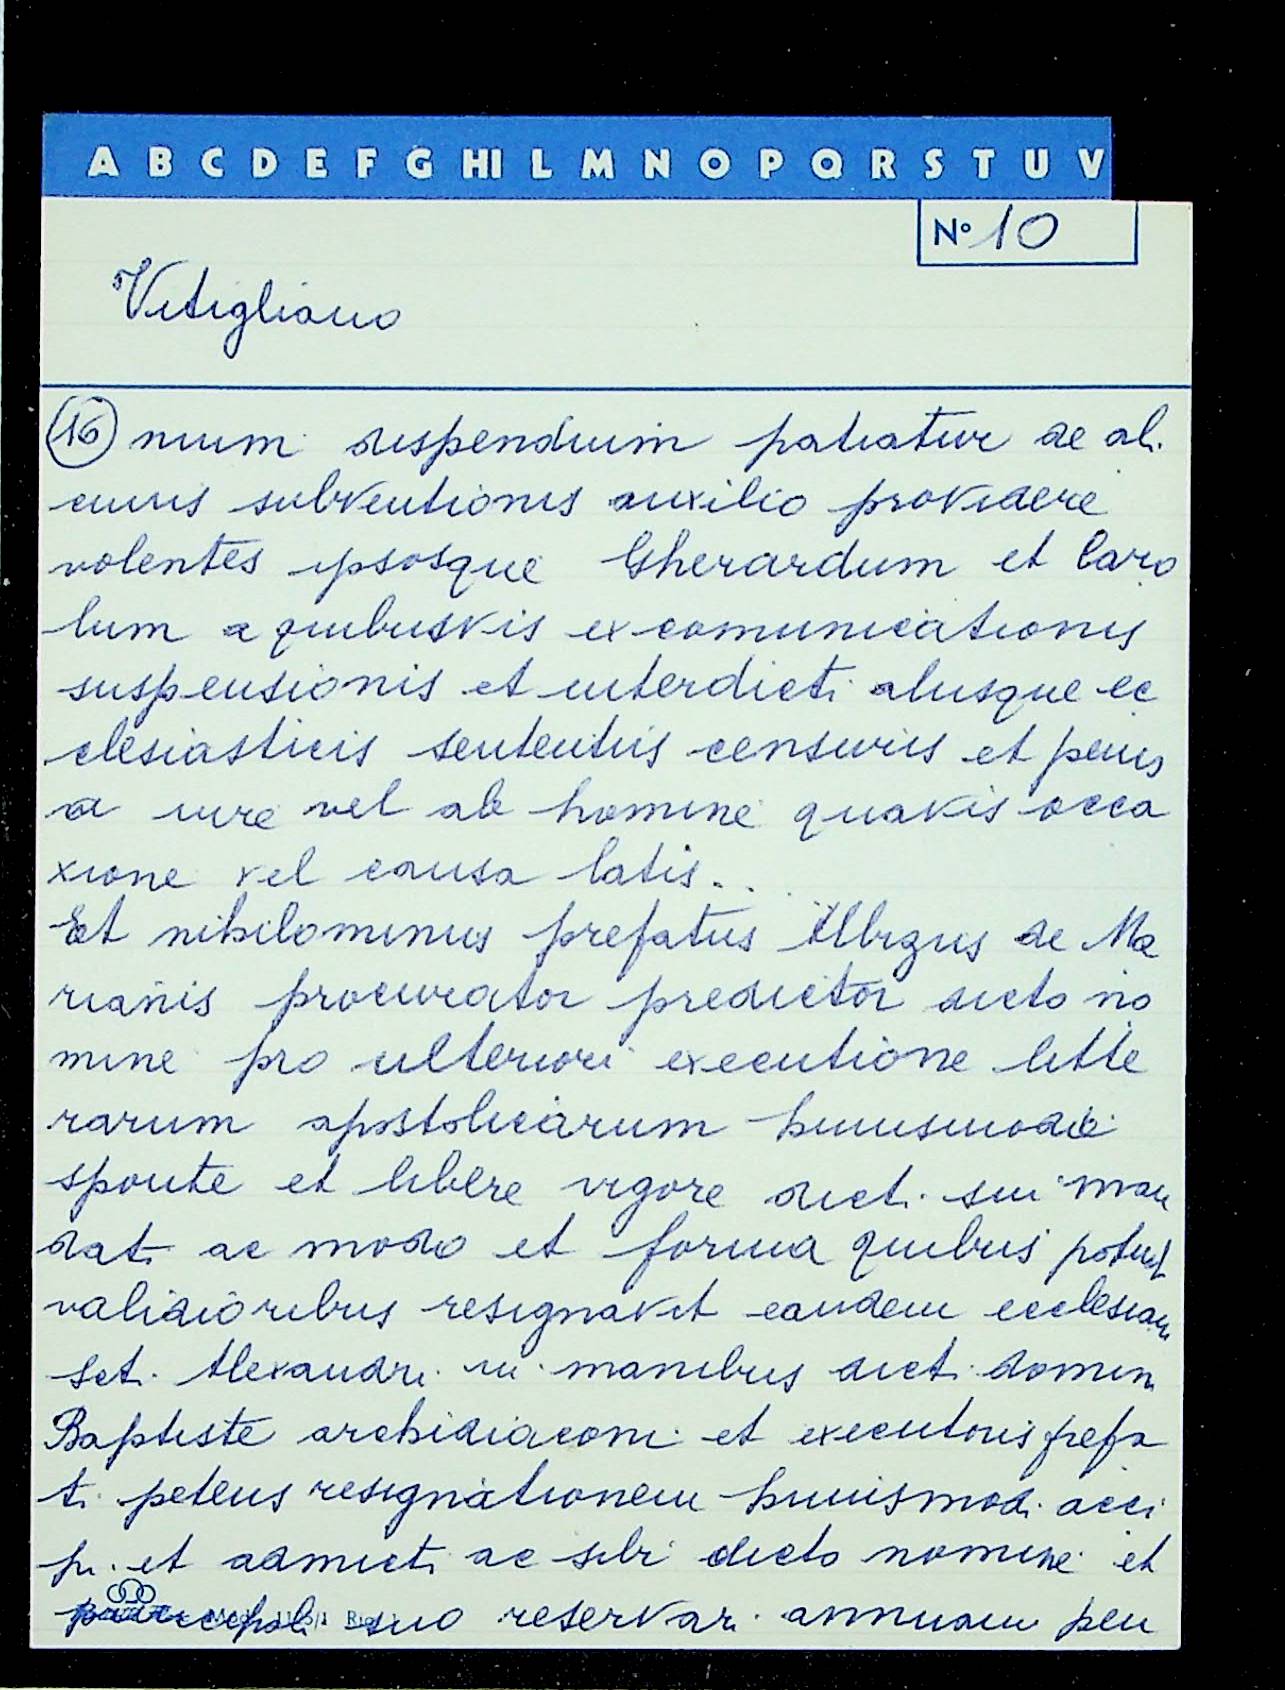 A B C D E F G HI L M N O P Q R S T U V
N° 10
Vitigliano
16 nium dispendium patiatur de ali
cuius subventionis auxilio providere
volentes ipsosque Gherardum et Caro
lum a quibusvis excomunicationis
suspensionis et interdicti aliisque ec
clesiasticis sententiis censuris et penis
a iure vel ab homine quavis occa
xione vel causa latis...
Et nihilominus prefatus Albizus de Ma
rianis procurator predictor dicto no
mine pro ulteriori executione litte
rarum apostolicarum huiusmodi
sponte et libere vigore dicti sui man
dati ac modo et forma quibus potuit
validioribus resignavit eandem ecclesiam
Scti Alexandri in manibus dicti domini
Baptiste archidiaconi et executoris prefa
ti petens resignationem huiusmodi acci
pi et admicti ac sibi dicto nomine et
principali suo reservari annuam pen